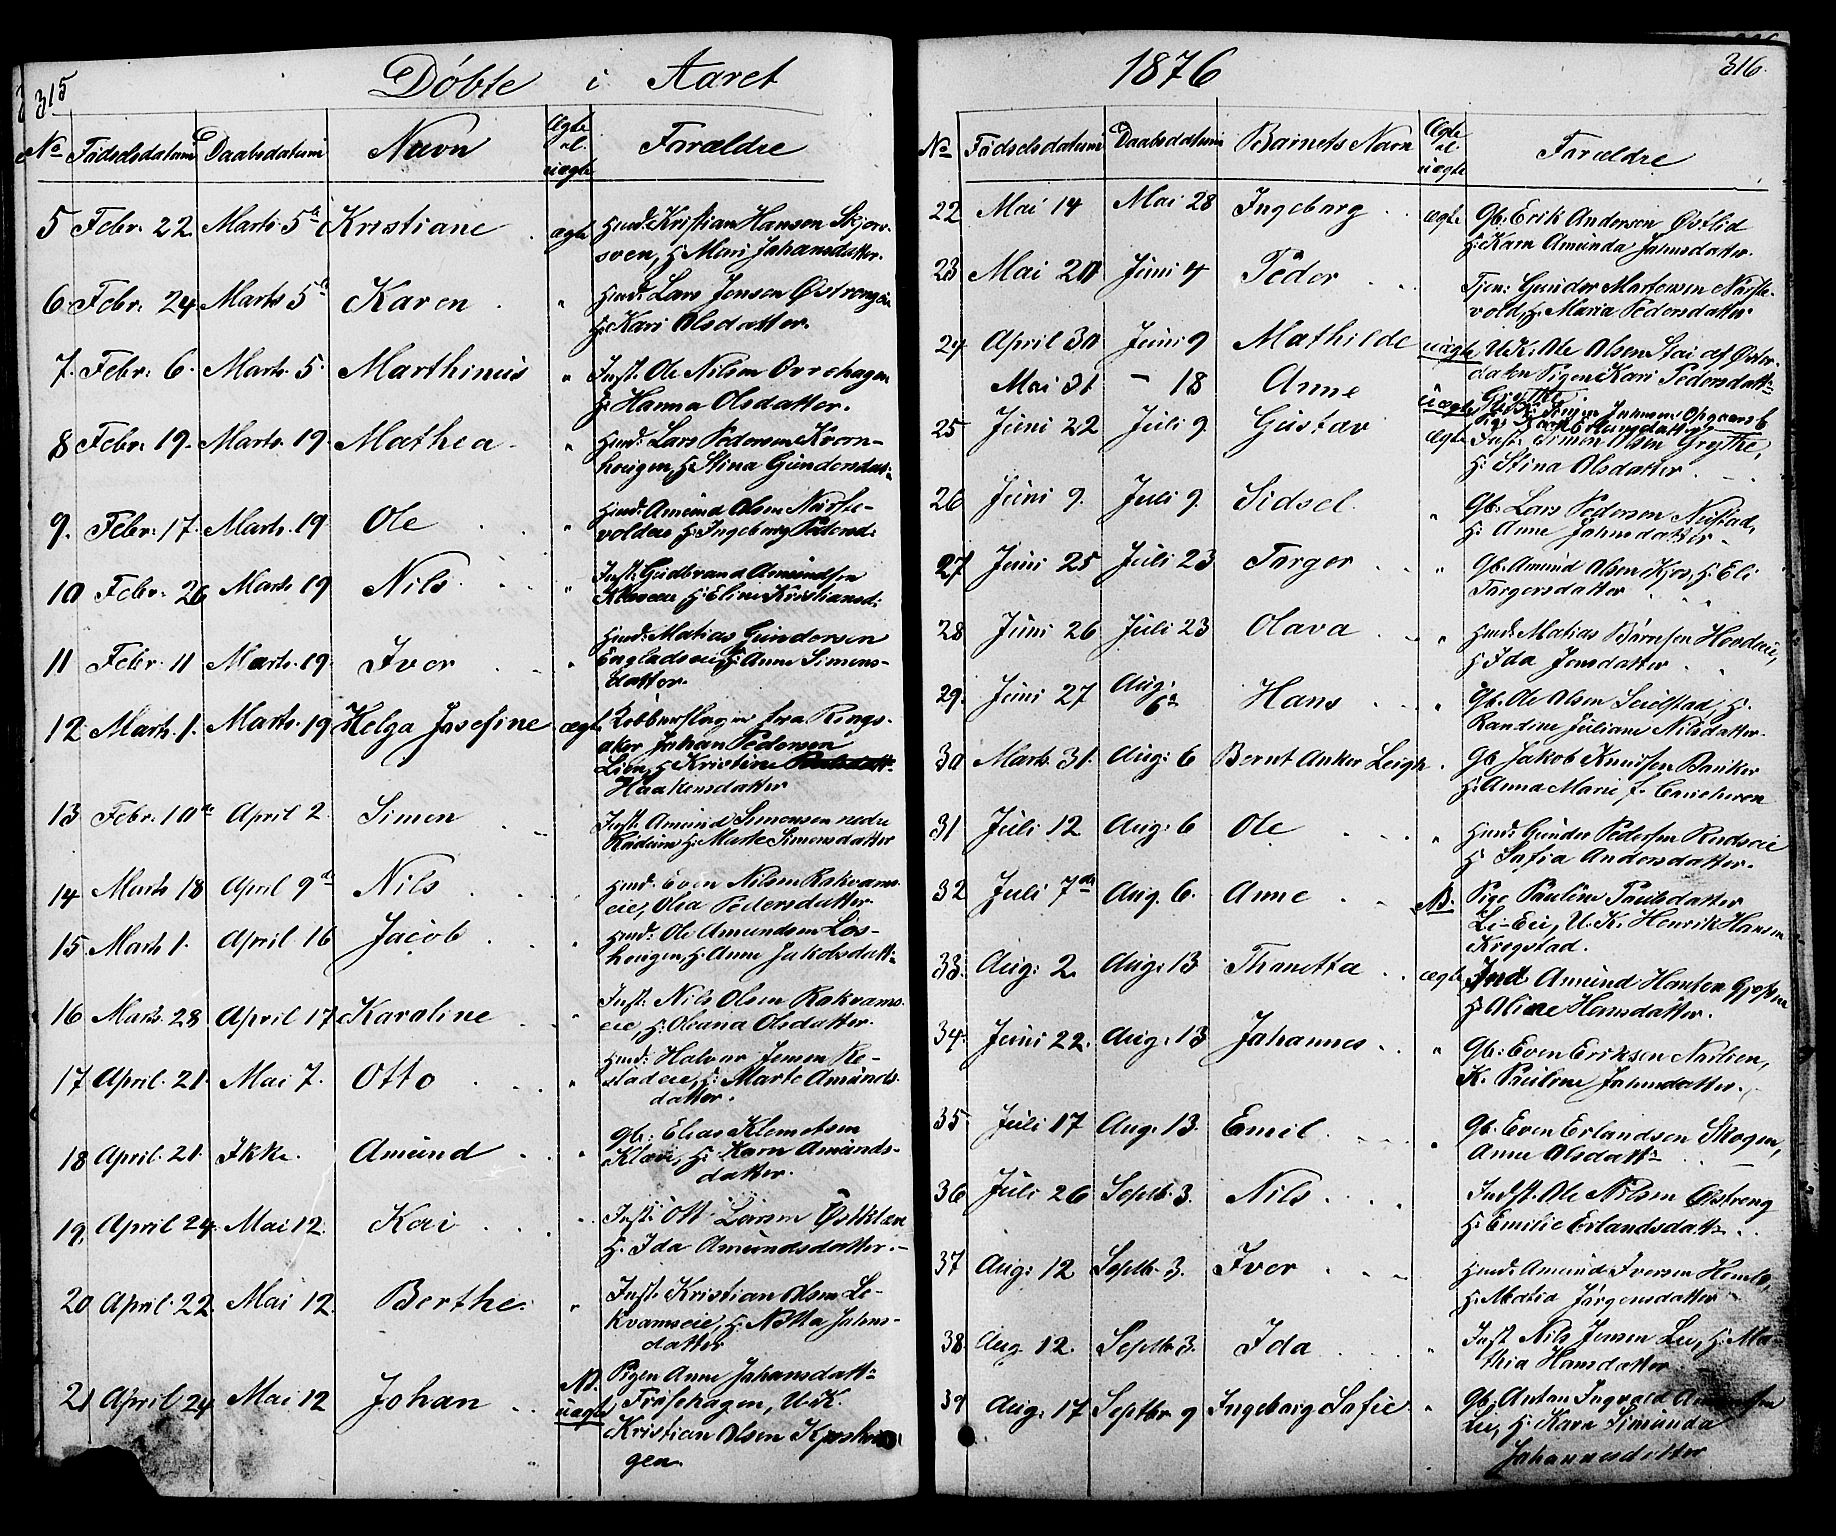 315
Døbte i Aaret
No Fødselsdatum Daabsdatum Navn Ægte el. uægte Forældre
5 Febr. 22 Marts 5te Kristiane ægte Husm: Kristian Hansen Skjors-
sveen, H: Mari Johansdatter.
6 Febr. 24 Marts 5te Karen " Husm: Lars Jensen Østrengeie
H: Kari Olsdatter.
7. Febr. 6. Marts 5. Marthinus " Inst: Ole Nilsen Ovrehagen
H: Hanna Olsdatter.
8 Febr. 19. Marts 19 Mathea " Husm: Lars Pedersen Kvern-
hougen, H: Stina Gundersdatt:
9. Febr. 17. Marts. 19 Ole " Husm: Amund Olsen Nørste-
voldeie H: Ingeborg Pedersd:
10 Febr. 26 Marts 19 Nils " Inst: Gudbrand Amundsen
Kløveeie, H: Eline Kristiansd:
11 Febr. 11 Marts. 19 Iver " Husm: Matias Gundersen
Engladseie, H: Anne Simens-
datter.
12 Marts. 1. Marts. 19 Helga Josefine ægte Kobberslager fra Rings-
aker Johan Pedersen
Lien, H: Kristine
Haakensdatter
13 Febr. 10de April 2 Simen " Inst: Amund Simensen nedre
H: Marte Simensdatter
14 Marts 18 April 9de Nils Husm: Even Nilsen Rakvams-
eie, Olea Pedersdatter
15 Marts 1. April 16 Jacob " Husm: Ole Amundsen Løs-
hougen, H: Anne Jakobsdatt:
16 Marts. 28 April 17 Karoline " Inst: Nils Olsen Rakvams-
eie, H: Oleana Olsdatter.
17 April. 21. Mai 7. Otto " Husm: Halvor Jensen Re-
stadeie, H: Marte Amunds-
datter.
18 April. 21. Ikke. Amund " Gb: Elias Klemetsen
Kløve, H: Karn Amunds-
datter.
19. April 24 Mai 12. Kai " Inst: Ott Larsen Østklæv
H: Ida Amundsdatter.
20 April. 22 Mai 12. Berthe. " Inst: Kristian Olsen Le-
Kvamseie, H: Netta Johns-
datter
21 April 24 Mai 12 Johan NB. uægte Pigen Anne Johansdatt:
Trøsehagen, U.K.
Kristian Olsen Kjoshou-
gen.
1876 316.
No Fødselsdatum Daabsdatum Barnets Navn Ægte el. uægte Forældre
22 Mai 14 Mai 28 Ingeborg ægte Gb. Erik Andersen Østlid
H: Karn Amunda Johnsdatter.
23 Mai 20 Juni 4 Peder Tjen: Gunder Martensen Nørste-
vold, H: Maria Pedersdatter
24 April 30 Juni 9 Mathilde uægte U.K. Ole Olsen Stai af Øster-
dalen Pigen Kari Pedersdatt:
Mai 31 - 18 Anne uægte
25 Juni 22 Juli 9. Gustav ægte Inst: Simen Olsen Grythe,
H: Stina Olsdatter
26 Juni 9. Juli 9. Sidsel " Gb. Lars Pedersen Nustad,
H: Anne Johnsdatter
27 Juni 25 Juli 23 Torger " Gb. Amund Olsen Kjos, H: Eli
Torgersdatter
28 Juni 26 Juli 23 Olava " Husm: Matias Børresen Hovdeie,
H: Ida Jonsdatter
29. Juni 27 Aug: 6te Hans " Gb. Ole Olsen Seielstad, H:
Randine Juliane Nilsdatter.
30 Marts. 31. Aug: 6 Bernt Anker Leigh Gb Jakob Knutsen Banker
H: Anna Marie f.
31 Juli 12 Aug: 6 Ole " Husm: Gunder Pedersen Rudseie
H: Sofia Andersdatter.
32 Juli 7de Aug. 6. Anne NB. Pige Pauline Paulsdatter
Li-Eie, U.K. Henrik Hansen
Krogstad.
33 Aug: 2. Aug: 13 Thonetta ægte Ind Amund Hansen
H: Oline Hansdatter.
34. Juni 22. Aug. 13 Johannes " Gb: Even Eriksen Nerlien,
K. Pauline Johnsdatter.
35 Juli 17 Aug. 13. Emil " Gb. Even Erlandsen Skogen,
Anne Olsdatt:
36 Juli 26 Septb. 3. Nils Indst. Ole Nilsen Østreng
H: Emilie Erlandsdatt:
37 Aug: 12 Septb. 3. Iver Husm: Amund Iversen
H: Matia Jørgensdatter
38 Aug. 12. Septb. 3. Ida " Inst Nils Jensen Lie, H: Ma-
thia Hansdatter
39 Aug: 17 Septbr 9 Ingeborg Sofie " Gb. Anton Ingvald Amundsen
Lie, H: Karn Simunda
Johannesdatter